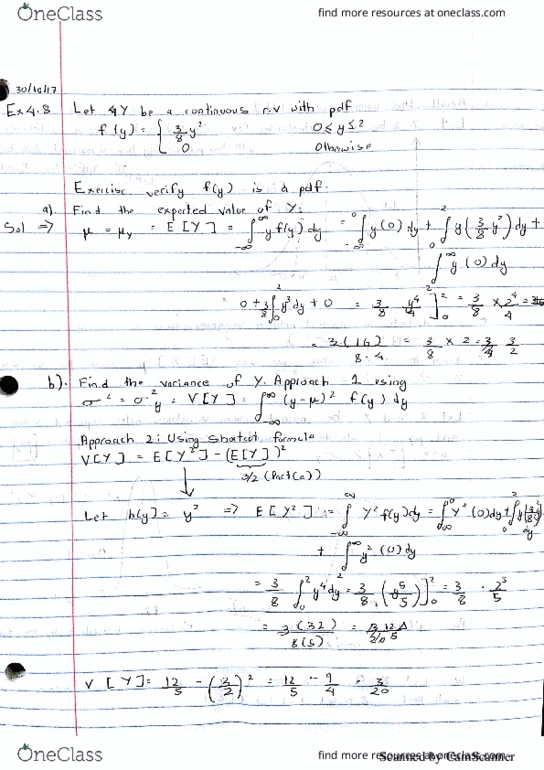 OneClass
find more resources at oneclass.com
30/10/17
Ex 4.8 Let Y be a continuous r.v with pdf
f(y) = { 3/8 y² 0 ≤ y ≤ 2
0 Otherwise
Exercise verify f(y) is a pdf.
a). Find the expected value of Y:
Sol ⇒ μ = μ_Y = E[Y] = ∫_{-∞}^{∞} y f(y) dy = ∫_{-∞}^{0} y(0) dy + ∫_0^2 y(3/8 y²) dy +
∫^∞ y (0) dy
= 0 + 3/8 ∫_0^2 y³ dy + 0 = 3/8 y⁴/4 ]_0^2 = 3/8 × 2⁴/4 =
= 3(16)/8·4 = 3/8 × 2 = 3/4 3/2
b). Find the variance of Y. Approach 1 using
σ² = σ²_Y = V[Y] = ∫_{-∞}^{∞} (y-μ)² f(y) dy
Approach 2: Using Shortcut formula
V[Y] = E[Y²] - (E[Y])²
3/2 (Part(a))
Let h(y) = y² ⇒ E[Y²] = ∫_{-∞}^{∞} Y² f(y) dy = ∫_{-∞}^{0} Y² (0) dy + ∫_0^2 y² (3/8 y²) dy
+ ∫^∞ y² (0) dy
= 3/8 ∫_0^2 y⁴ dy = 3/8 (y⁵/5) ]_0^2 = 3/8 · 2⁵/5
= 3(32)/8(5) = 12/5
V[Y] = 12/5 - (3/2)² = 12/5 - 9/4 = 3/20
OneClass
find more resources at oneclass.com
Scanned by CamScanner